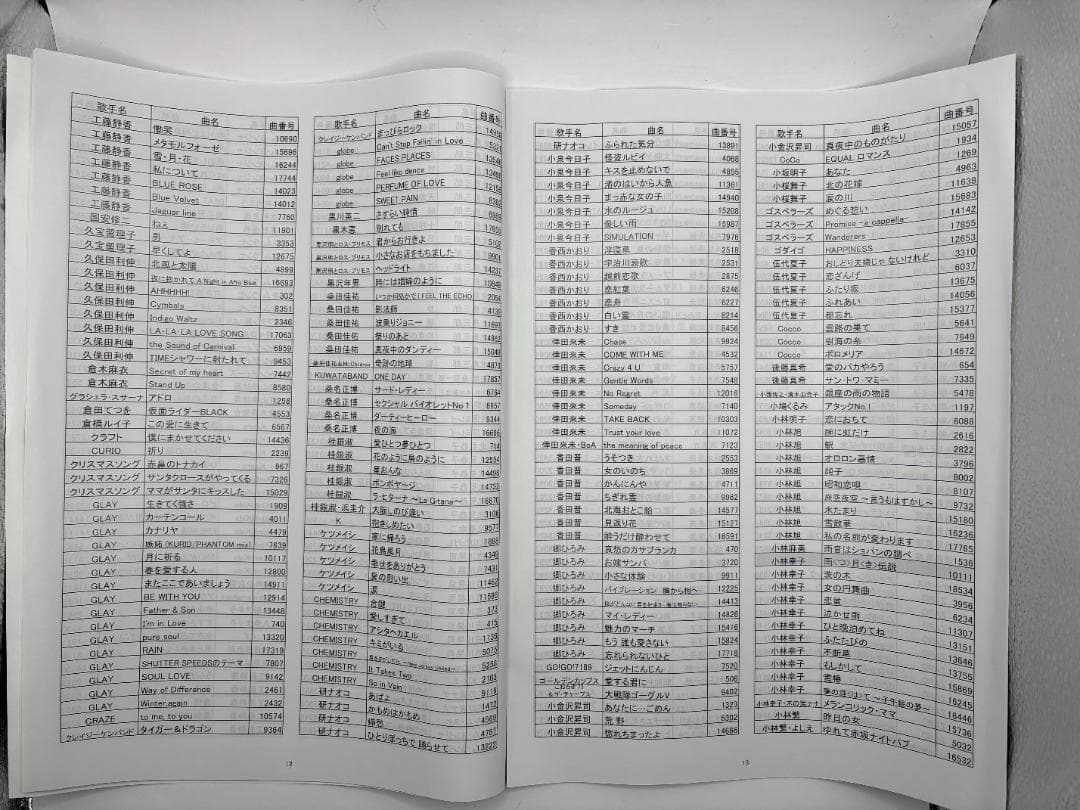 歌手名 曲名 曲番号
工藤静香 慟哭 10690
工藤静香 メタモルフォーゼ 15696
工藤静香 雪・月・花 16244
工藤静香 私について 17744
工藤静香 BLUE ROSE 14023
工藤静香 Blue Velvet 14012
工藤静香 Jaguar line 7760
国安修二 ねぇ 11901
久宝留理子 男 3353
久宝留理子 早くしてよ 12675
久保田利伸 北風と太陽 4899
久保田利伸 夜に抱かれて A Night in Afro Blue 16693
久保田利伸 AHHHHH! 302
久保田利伸 Cymbals 8351
久保田利伸 Indigo Waltz 2346
久保田利伸 LA・LA・LA LOVE SONG 17063
久保田利伸 the Sound of Carnival 6959
久保田利伸 TIMEシャワーに射たれて 9453
倉木麻衣 Secret of my heart 7442
倉木麻衣 Stand Up 8580
グラシェラ・スサーナ アドロ 1258
倉田てつを 仮面ライダーBLACK 4553
倉橋ルイ子 この愛に生きて 6567
クラフト 僕にまかせてください 14436
CURIO 祈り 2239
クリスマスソング 赤鼻のトナカイ 967
クリスマスソング サンタクロースがやってくる 7326
クリスマスソング ママがサンタにキッスした 15029
GLAY 生きてく強さ 1909
GLAY カーテンコール 4011
GLAY カナリヤ 4479
GLAY 嫉妬 (KURID/PHANTOM mix) 7839
GLAY 月に祈る 10117
GLAY 春を愛する人 12800
GLAY またここであいましょう 14911
GLAY BE WITH YOU 7914
GLAY Father & Son 13448
GLAY I'm in Love 740
GLAY pure soul 13320
GLAY RAIN 17319
GLAY SHUTTER SPEEDSのテーマ 7807
GLAY SOUL LOVE 9142
GLAY Way of Difference 2461
GLAY Winter,again 2432
CRAZE to me, to you 10574
クレイジーケンバンド タイガー&ドラゴン 9364
12
歌手名 曲名 曲番号
クレイジーケンバンド まっぴらロック
globe Can't Stop Fallin' in Love
globe FACES PLACES
globe Feel like dance
globe PERFUME OF LOVE
globe SWEET PAIN
黒川英二 さすらい純情
黒木憲 別れても
黒沢明とロス・プリモス 君からお行きよ 5102
黒沢明とロス・プリモス 小さなお店をもちました 9901
黒沢明とロス・プリモス ヘッドライト 14237
黒沢年男 時には娼婦のように 10949
桑田佳祐 いつか何処かで I FEEL THE ECHO 2054
桑田佳祐 影法師 4139
桑田佳祐 波乗りジョニー 11693
桑田佳祐 祭りのあと 14963
桑田佳祐 真夜中のダンディー 15048
桑田佳祐&Mr.Children 奇跡の地球 4873
KUWATABAND ONE DAY 17857
桑名正博 サード・レディー 6764
桑名正博 セクシャルバイオレットNo.1 8957
桑名正博 ダーティーヒーロー 9344
桑名正博 夜の海 16686
桂銀淑 愛ひとつ夢ひとつ 714
桂銀淑 花のように鳥のように 12554
桂銀淑 星おんな 14498
桂銀淑 ボンボヤージ 14752
桂銀淑 ラ・セターナ ～La Gitana～ 16870
桂銀淑・浜圭介 大阪しのび逢い 3106
K 抱きしめたい 9577
ケツメイシ 家に帰ろう 1898
ケツメイシ 花鳥風月 4340
ケツメイシ 幸せをありがとう 7431
ケツメイシ 夏の思い出 11460
ケツメイシ 涙 11590
CHEMISTRY 合鍵 373
CHEMISTRY 愛しすぎて 415
CHEMISTRY アシタヘカエル 1139
CHEMISTRY キミがいる 5075
CHEMISTRY 5258
CHEMISTRY It Takes Two 2103
CHEMISTRY So in Vain 9118
研ナオコ あばよ 1412
研ナオコ かもめはかもめ 4569
研ナオコ 窓愁 4787
研ナオコ ひとりぼっちで踊らせて 13222
歌手名 曲名 曲番号
研ナオコ ふられた気分 13891
小泉今日子 怪盗ルビイ 4068
小泉今日子 キスを止めないで 4855
小泉今日子 渚のはいから人魚 11361
小泉今日子 まっ赤な女の子 14940
小泉今日子 水のルージュ 15208
小泉今日子 優しい雨 15987
小泉今日子 SIMULATION 7976
香西かおり 浮寝草 2518
香西かおり 宇治川哀歌 2531
香西かおり 越前恋歌 2875
香西かおり 恋紅葉 6246
香西かおり 恋舟 6227
香西かおり 白い雪 8214
香西かおり すき 8456
倖田來未 Chase 9924
倖田來未 COME WITH ME 4532
倖田來未 Crazy 4 U 5757
倖田來未 Gentle Words 7548
倖田來未 No Regret 12016
倖田來未 Someday 7140
倖田來未 TAKE BACK 10300
倖田來未 Trust your love 11072
倖田來未・BoA the meaning of peace 7123
香田晋 うそつき 2553
香田晋 女のいのち 3869
香田晋 かんにんや 4711
香田晋 ちぎれ雲 9962
香田晋 北海おとこ船 14577
香田晋 見返り花 15127
香田晋 酔うだけ酔わせて 16591
郷ひろみ 哀愁のカサブランカ 470
郷ひろみ お嫁サンバ 3720
郷ひろみ 小さな体験 9911
郷ひろみ バイブレーション 胸から胸へ 12225
郷ひろみ 14413
郷ひろみ マイ・レディー 14826
郷ひろみ 魅力のマーチ 15416
郷ひろみ もう誰も愛さない 15824
郷ひろみ 忘れられないひと 17718
GO!GO!7189 ジェットにんじん 7520
ゴールデンカップス 愛する君に 506
こおろぎ'73 大戦隊ゴーグルV 9402
小金沢昇司 あなたに…ごめん 1323
小金沢昇司 荒野 6302
小金沢昇司 惚れちまったよ 14696
13
歌手名 曲名 曲番号
小金沢昇司 真夜中のものがたり 15057
CoCo EQUAL ロマンス 1934
小坂明子 あなた 1269
小桜舞子 北の花嫁 4963
小桜舞子 涙の川 11638
ゴスペラーズ めぐる想い 15683
ゴスペラーズ Promise -a cappella- 14142
ゴスペラーズ Wanderers 17855
ゴダイゴ HAPPINESS 12653
伍代夏子 おしどり夫婦じゃないけれど 3310
伍代夏子 恋ざんげ 6037
伍代夏子 ふたり坂 13675
伍代夏子 ふれあい 14056
伍代夏子 都忘れ 15377
Cocco 雲路の果て 5641
Cocco 樹海の糸 7949
Cocco ポロメリア 14672
後藤真希 愛のバカやろう 654
後藤真希 サン・トワ・マミー 7335
銀座の雨の物語 5478
小鳩くるみ アタックNo.1 1197
小林明子 恋におちて 6088
小林旭 腕に虹だけ 2616
小林旭 駅 2822
小林旭 オロロン慕情 3796
小林旭 純子 8002
小林旭 昭和恋唄 8107
小林旭 ～言うもはずかし～ 9732
小林旭 氷たまり 15180
小林旭 雪散華 16236
小林旭 私の名前が変わります 17765
小林麻美 雨音はショパンの調べ 1536
小林幸子 雨(つ)月(き)伝説 10111
小林幸子 茨の木 18534
小林幸子 女の円舞曲 3956
小林幸子 恋蛍 6234
小林幸子 泣かせ雨 11307
小林幸子 ひと晩泊めてね 13151
小林幸子 ふたたびの 13646
小林幸子 不断草 13755
小林幸子 もしかして 15869
小林幸子 雪椿 16245
小林幸子 ～子午線の夢～ 18446
小林幸子・木の実ナナ メランコリック・ママ 15736
小林繁 昨日の女 5032
小林繁・よしえ ゆれて赤坂ナイトパブ 16532